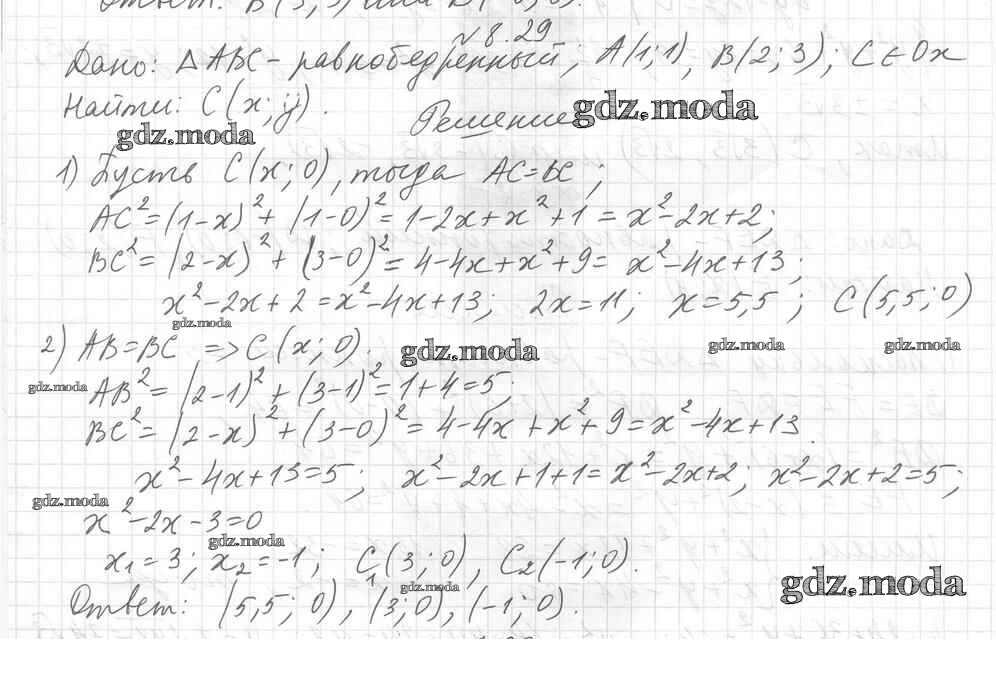 Ответ: B(5;5) или
№8.29
Дано: △ABC - равнобедренный; A(1;1), B(2;3); C∈Ox
Найти: C(x;y).
Решение gdz.moda
gdz.moda
1) Пусть C(x;0), тогда AC=BC;
AC²=(1-x)²+(1-0)²=1-2x+x²+1=x²-2x+2;
BC²=(2-x)²+(3-0)²=4-4x+x²+9=x²-4x+13;
x²-2x+2=x²-4x+13; 2x=11; x=5,5; C(5,5;0)
gdz.moda
2) AB=BC => C(x;0). gdz.moda gdz.moda gdz.moda
gdz.moda AB²=(2-1)²+(3-1)²=1+4=5;
BC²=(2-x)²+(3-0)²=4-4x+x²+9=x²-4x+13.
x²-4x+13=5; x²-2x+1+1=x²-2x+2; x²-2x+2=5;
gdz.moda
x²-2x-3=0
gdz.moda
x₁=3; x₂=-1; C₁(3;0), C₂(-1;0).
gdz.moda gdz.moda
Ответ: (5,5;0), (3;0), (-1;0).